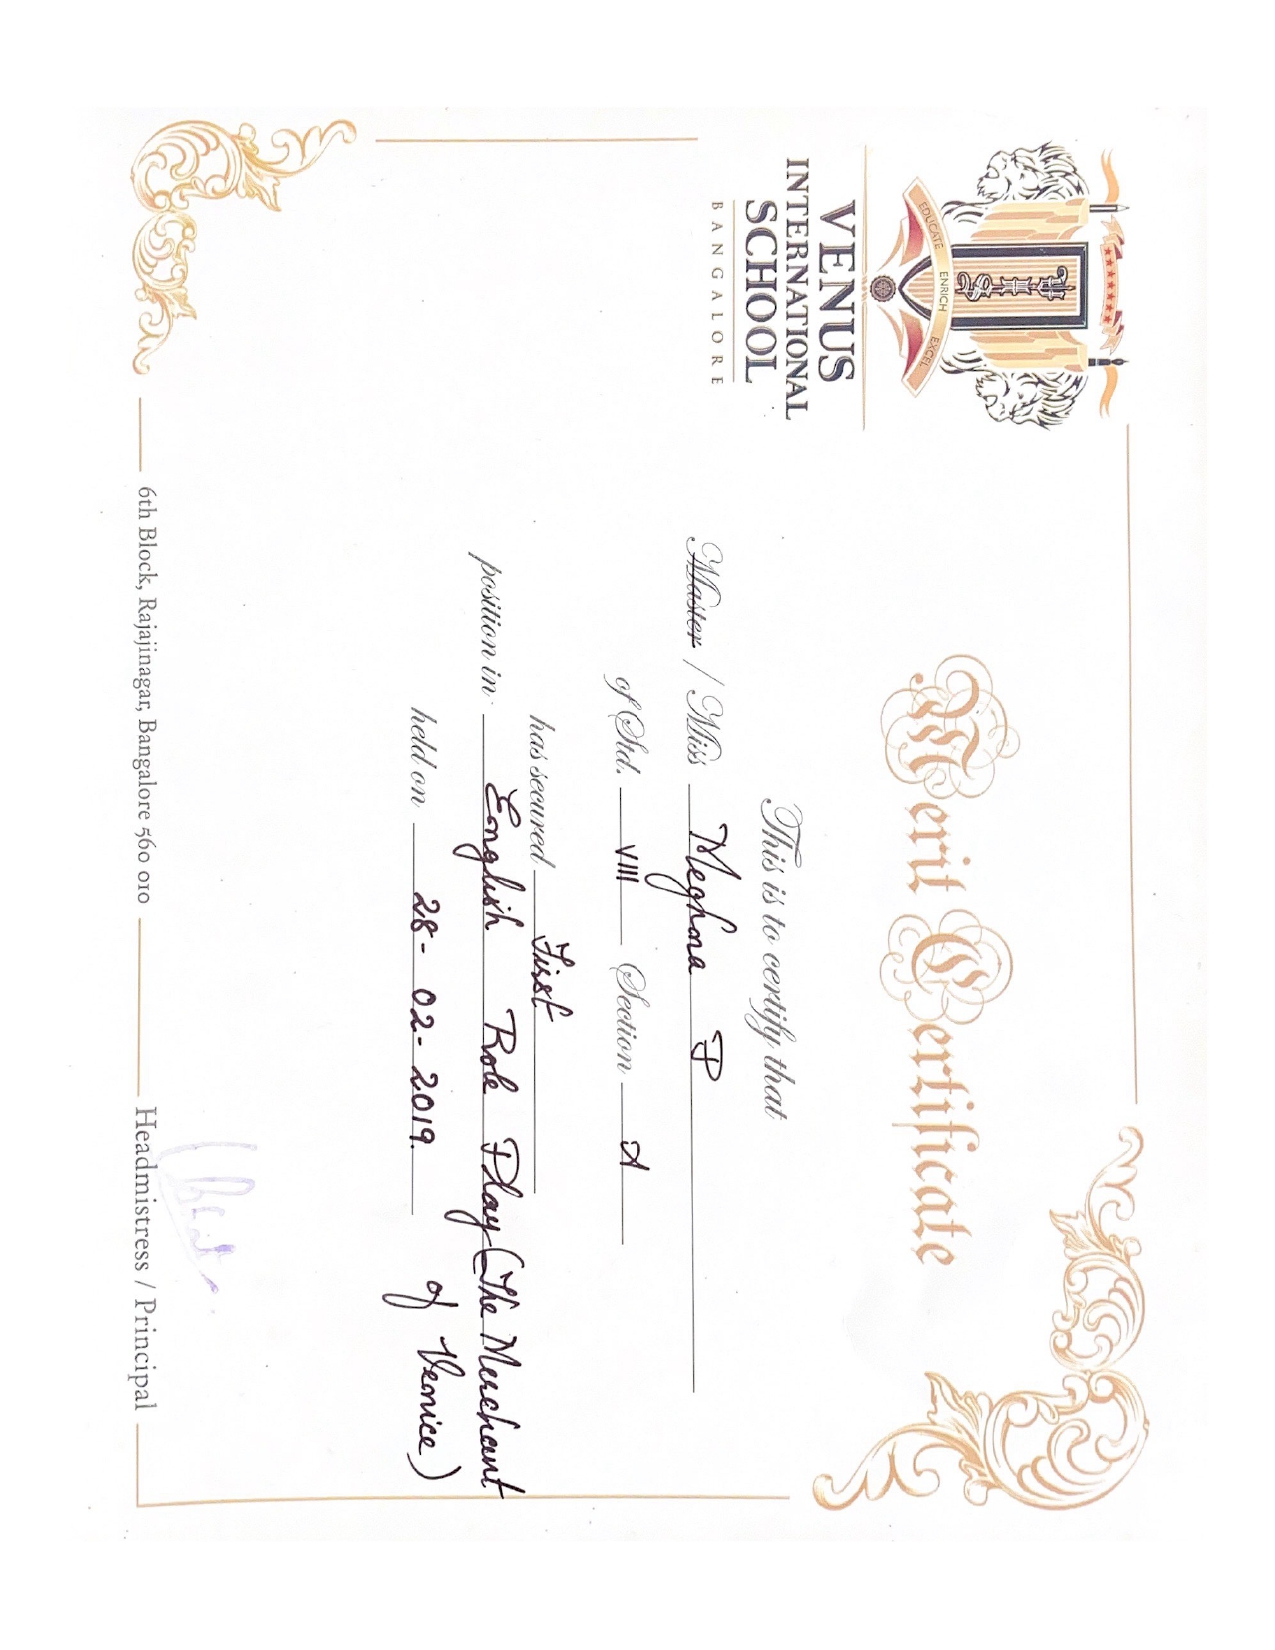 EDUCATE ENRICH EXCEL
VENUS
INTERNATIONAL
SCHOOL
BANGALORE
Merit Certificate
This is to certify that
Master / Miss Meghna P
of Std. VIII Section A
has secured First
position in English Role Play (The Merchant
of Venice)
held on 28-02-2019.
6th Block, Rajajinagar, Bangalore 560 010
Headmistress / Principal